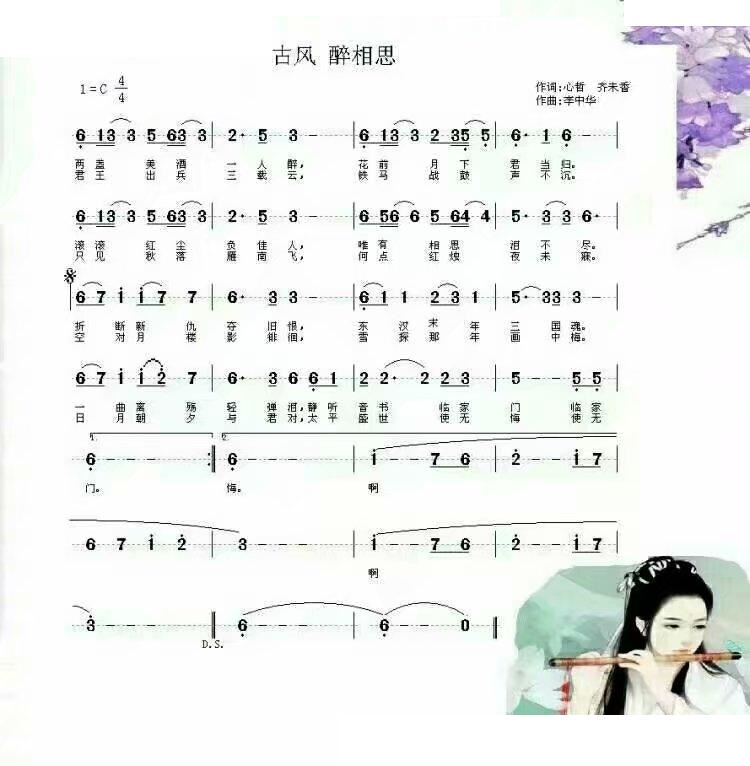 古风 醉相思
1=C 4/4
作词:心哲 齐未香
作曲:李中华
6 13 3 5 63 3 | 2· 5 3 - | 6 13 3 2 35 5 | 6· 1 6 - |
两盏 美酒 一人醉, 花前 月下 君当归。
君王 出兵 三载云, 铁马 战鼓 声不沉。
6 13 3 5 63 3 | 2· 5 3 - | 6 56 6 5 64 4 | 5· 3 3 6· |
滚滚 红尘 负佳人, 唯有 相思 泪不尽。
只见 秋落 雁南飞, 何点 红烛 夜未寐。
6 7 i i 7 7 | 6· 3 3 - | 6 1 1 2 3 1 | 5· 33 3 - |
折断新仇 夺旧恨, 东汉末年 三国魂。
空对月楼 影徘徊, 雪探那年 画中梅。
6 7 i i 2 7 | 6· 3 6 6 1 | 2 2· 2 4 3 | 5 - - 5 5 |
一曲离殇 轻弹泪,静听 音书 临家 门 临家
日月朝夕 与君对,太平 盛世 使无 悔 使无
1. 2.
6 - - - :| 6 - - - | i - 7 6 | 2 - i 7 |
门。 悔。 啊
6 7 i 2 | 3 - - - | i - 7 6 | 2 - i 7 |
啊
3 - - - | 6 - - - | 6 - 6 0 |
D.S.